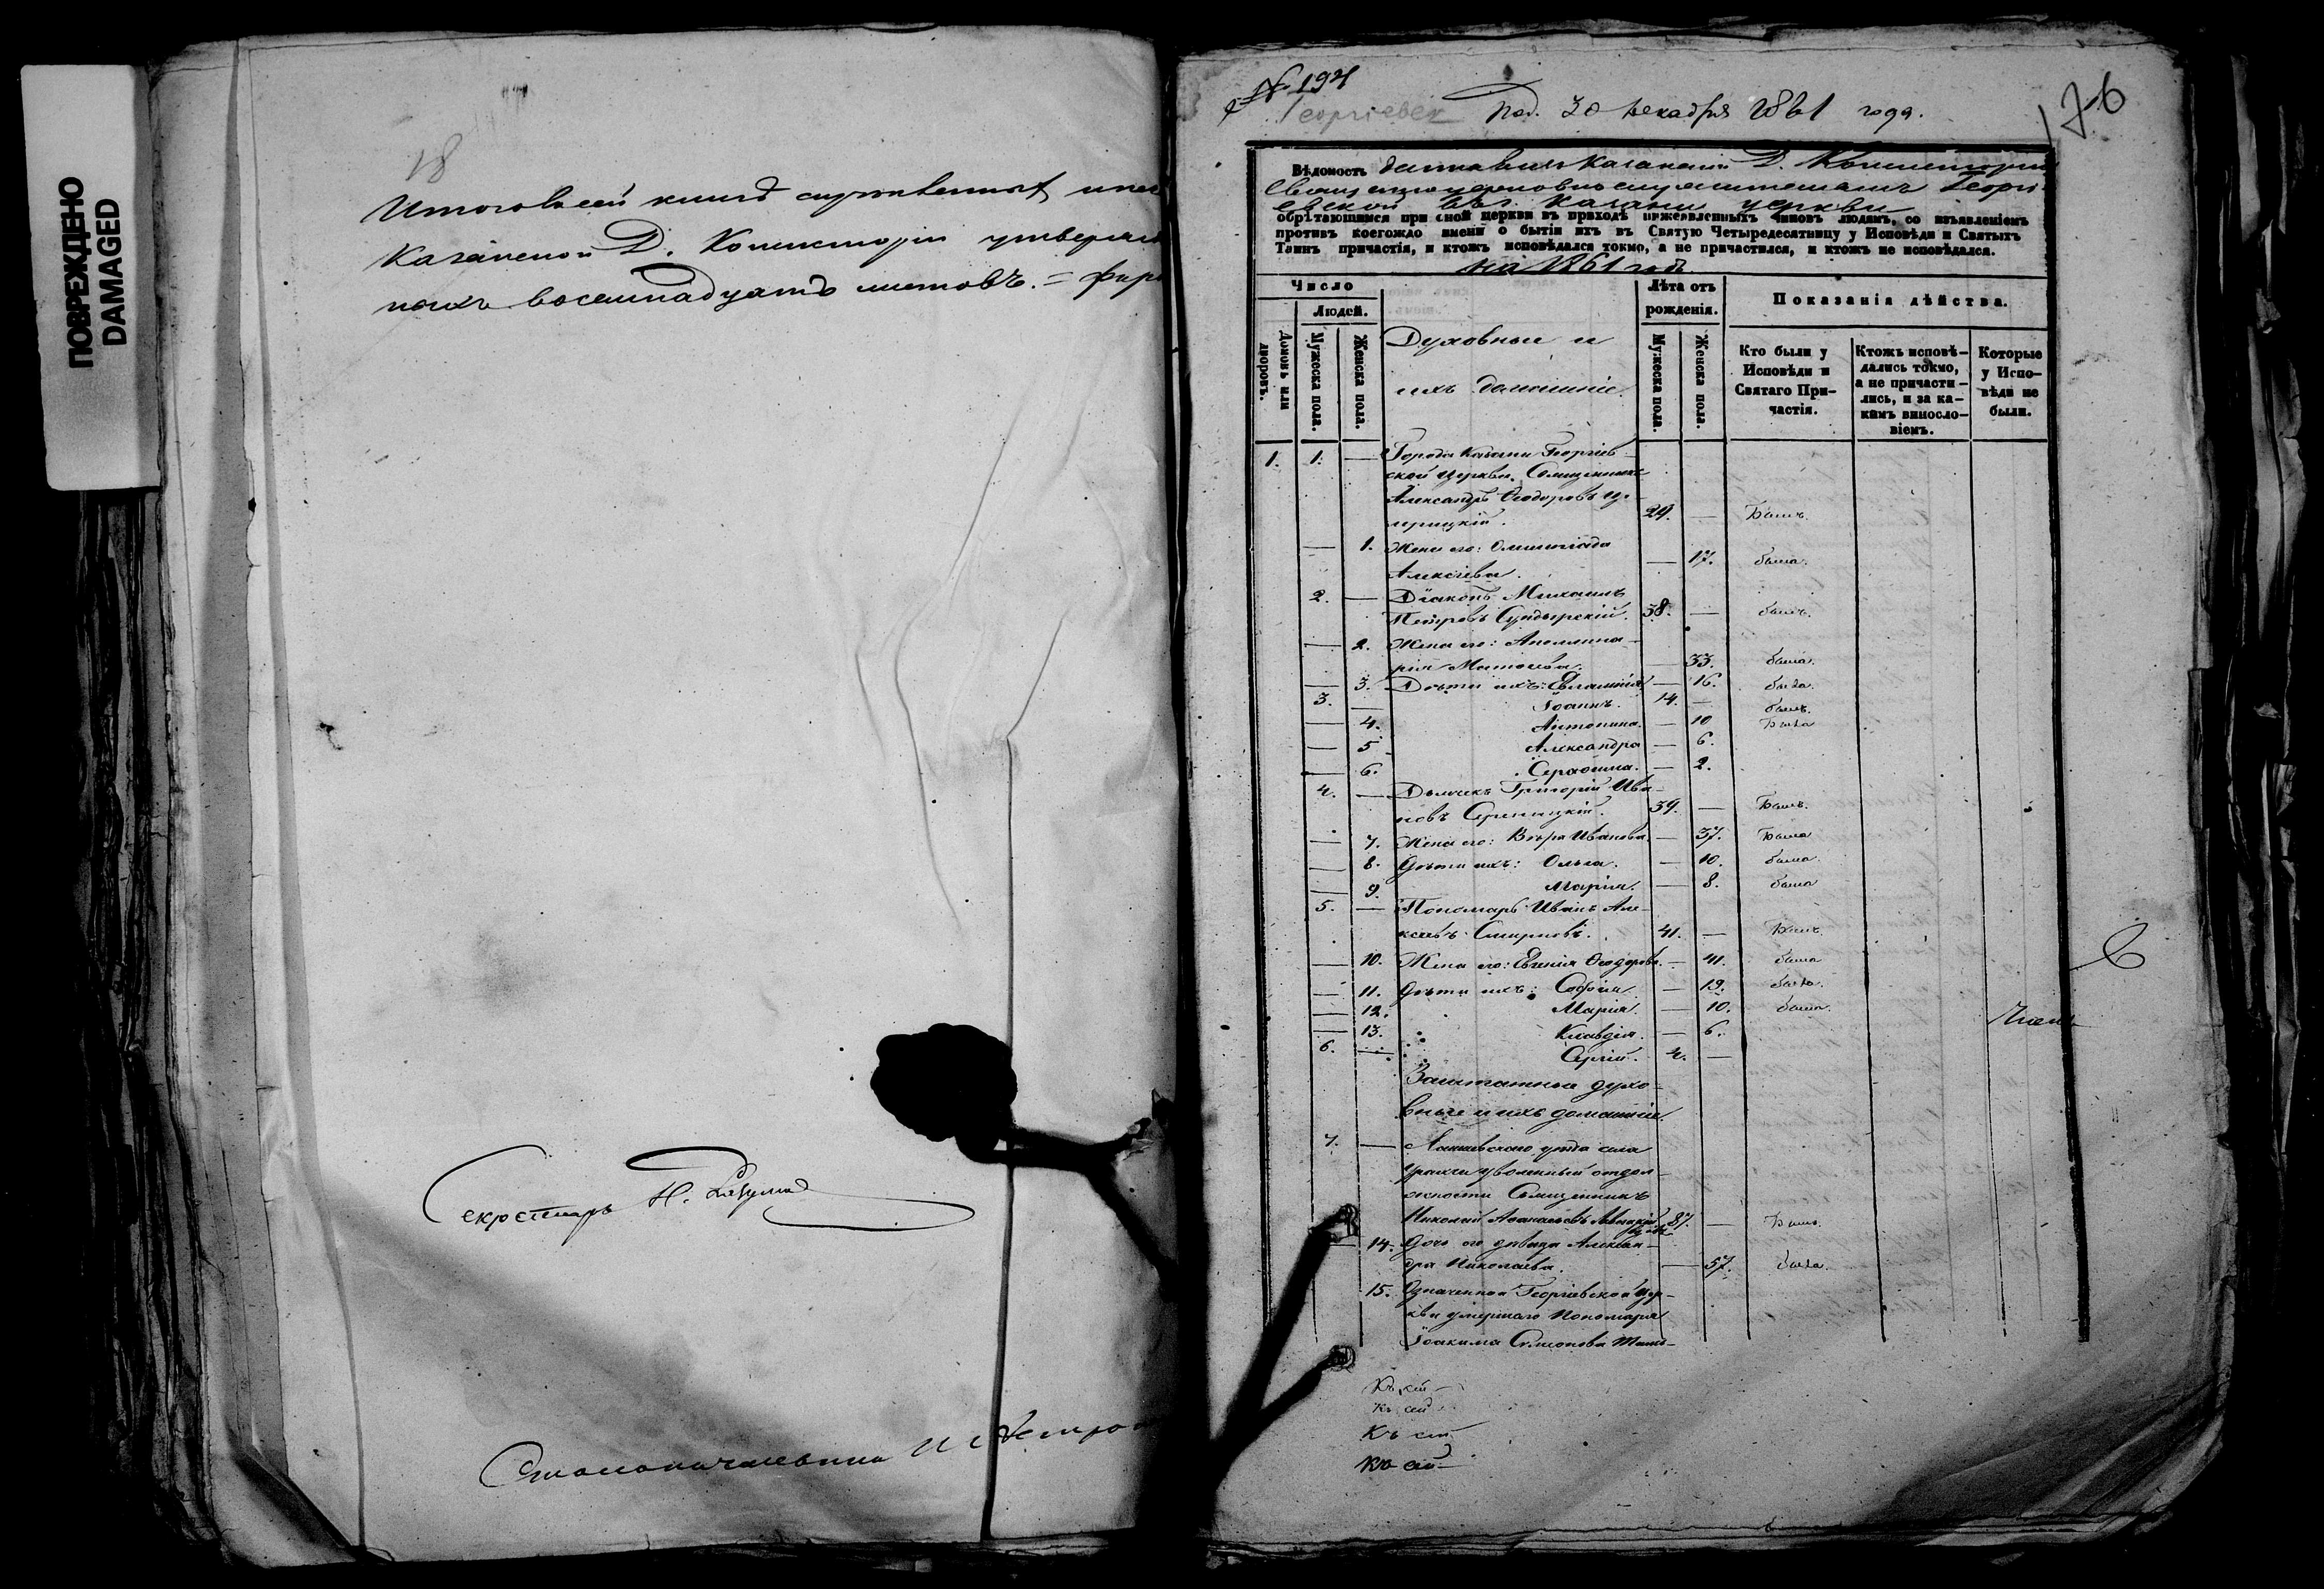 ПОВРЕЖДЕНО
DAMAGED
18
Итого в сей книгѣ
Казанской Д. Консисторіи
восемнадцать листовъ. =
Секретарь Н.
Столоначальникъ
№ 194
176
Георгіевск Пол. 30 декабря 1861 года.
Вѣдомость Казанской Д. Консисторіи
Георгі-
евской въ г. Казани церкви
обрѣтающимся при оной церкви въ приходѣ нижеявленныхъ чиновъ людямъ, со изъявленіемъ
противъ коегождо имени о бытіи ихъ въ Святую Четыредесятницу у Исповѣди и Святыхъ
Таинъ причастія, и ктожъ исповѣдался токмо, а не причастился, и ктожъ не исповѣдался.
на 1861 годъ
Число
Людей.
Домовъ или дворовъ.
Мужеска пола.
Женска пола.
Духовные и
ихъ домашніе.
Лѣта отъ
рожденія.
Мужеска пола.
Женска пола.
Показанія дѣйства.
Кто были у
Исповѣди и
Святаго При-
частія.
Ктожъ исповѣ-
дались токмо,
а не причасти-
лись, и за ка-
кимъ виносло-
віемъ.
Которые
у Испо-
вѣди не
были.
1. 1. — Города Казани Георгіев-
ской церкви Священникъ
Александръ Ѳеодоровъ
29. — Былъ.
— 1. Жена его: Олимпіада
Алексіева. — 17. была.
2. — Діаконъ Михаилъ
Петровъ Сундырскій. 38. — былъ.
— 2. Жена его: Аполлина-
рія Матѳеева. — 33. была.
— 3. Дѣти ихъ: Евлампія — 16. была.
3. — Іоаннъ. 14. — былъ.
— 4. Антонина. — 10 Была
— 5 Александра — 6.
— 6. Серафима. — 2.
4. — Дьячекъ Григорій Ива-
новъ 39. — Былъ.
— 7. Жена его: Вѣра Иванова — 37. Была
— 8. Дѣти ихъ: Ольга. — 10. была.
— 9. Марія. — 8. была
5. — Пономарь Иванъ Але-
ксѣевъ Смирновъ. 41. — Былъ.
— 10. Жена его: Евгенія Ѳеодорова. — 41. была
— 11. Дѣти ихъ: Софія. — 12. была.
— 12. Марія. — 10. была.
— 13. Клавдія. — 6.
6. — Сергій. 4. —
Заштатные духо-
вные и ихъ домашніе.
7. — Лаишевскаго уѣзда села
уволенный отъ дол-
жности Священникъ
Николай 87. — Былъ.
— 14. Дочь его дѣвица Алексан-
дра Николаева. — 57. была.
15. Означенной Георгіевской цер-
кви умершаго Пономаря
Іоакима Симеонова
Къ сей
Къ сей
Къ сей
Къ сей